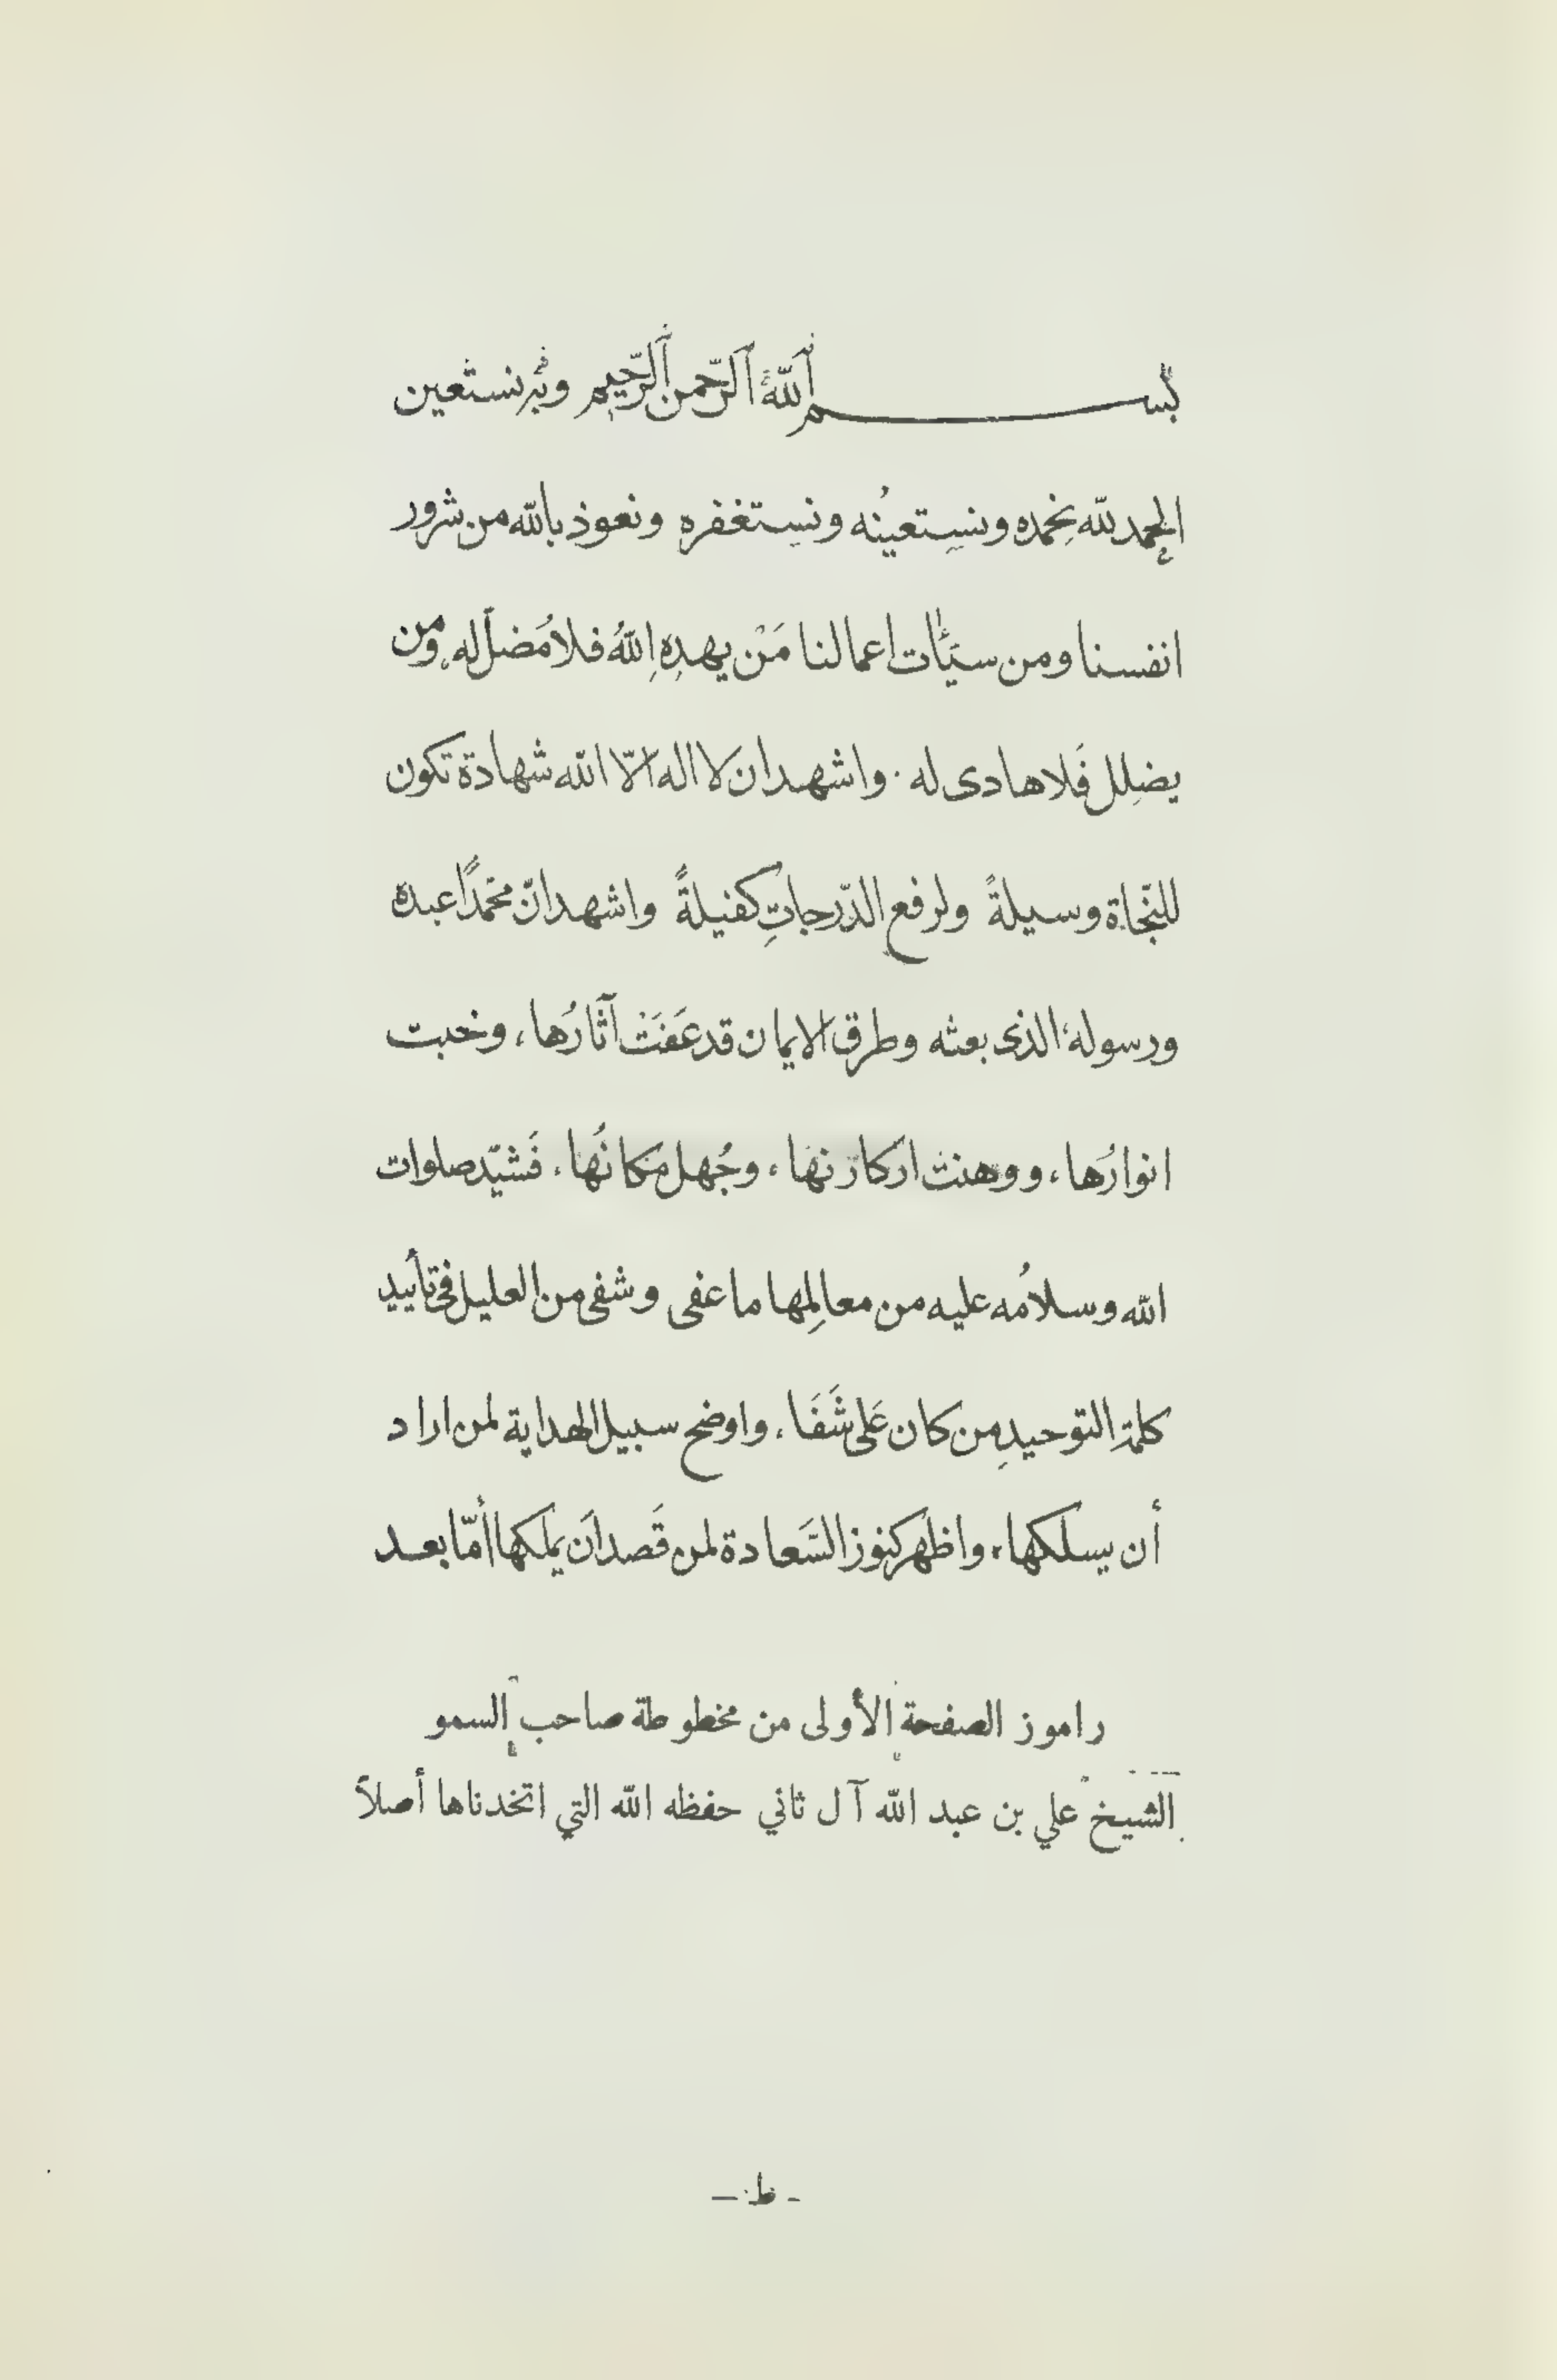 بسم اللهِ الرّحمن الرّحيم وبه نستعين
الحمد لله نحمده ونستعينُه ونستغفره ونعوذ بالله من شرور
انفسنا ومن سيّئات اعمالنا مَنْ يهدِهِ اللهُ فلا مُضلّ له ومن
يضلِل فَلا هادى له . واشهد ان لا اله الّا الله شهادة تكون
للنّجاة وسيلةً ولرفع الدّرجاتِ كفيلةً واشهد انّ محمّدًا عبده
ورسوله الذى بعثه وطرق الايمان قد عَفَتْ آثارُها ، وخبت
انوارُها ، ووهنت اركانها ، وجُهل مكانُها ، فَشيّد صلوات
الله وسلامُه عليه من معالمِها ما عفى وشفى من العليل فى تأييد
كلمة التوحيدِ من كان عَلى شَفَا ، واوضح سبيل الهداية لمن اراد
أن يسلكها ، واظهر كنوز السَّعادة لمن قَصد اَن يملكها أمّا بعد
راموز الصفحة الأولى من مخطوطة صاحب السمو
الشيخ علي بن عبد الله آل ثاني حفظه الله التي اتخدناها أصلاً
- ط -